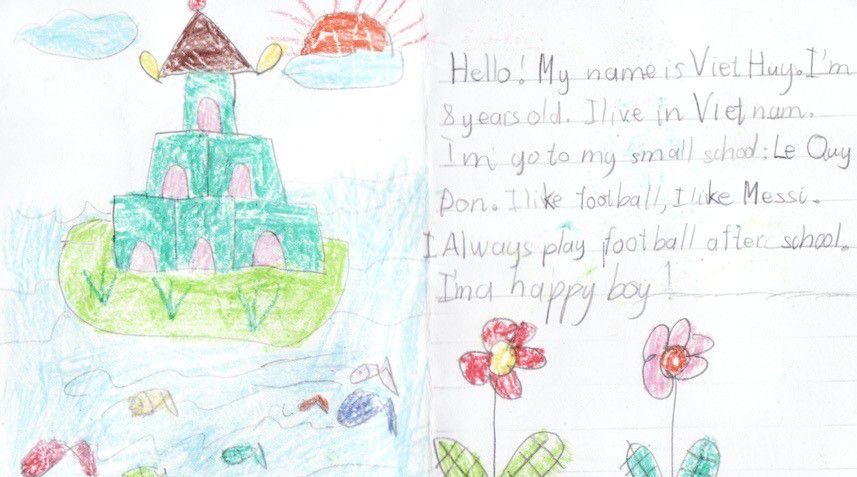 Hello! My name is Viet Huy. I'm
8 years old. I live in Viet nam.
I'm go to my small school: Le Quy
Don. I like football, I like Messi.
I Always play football after school.
I'm a happy boy!